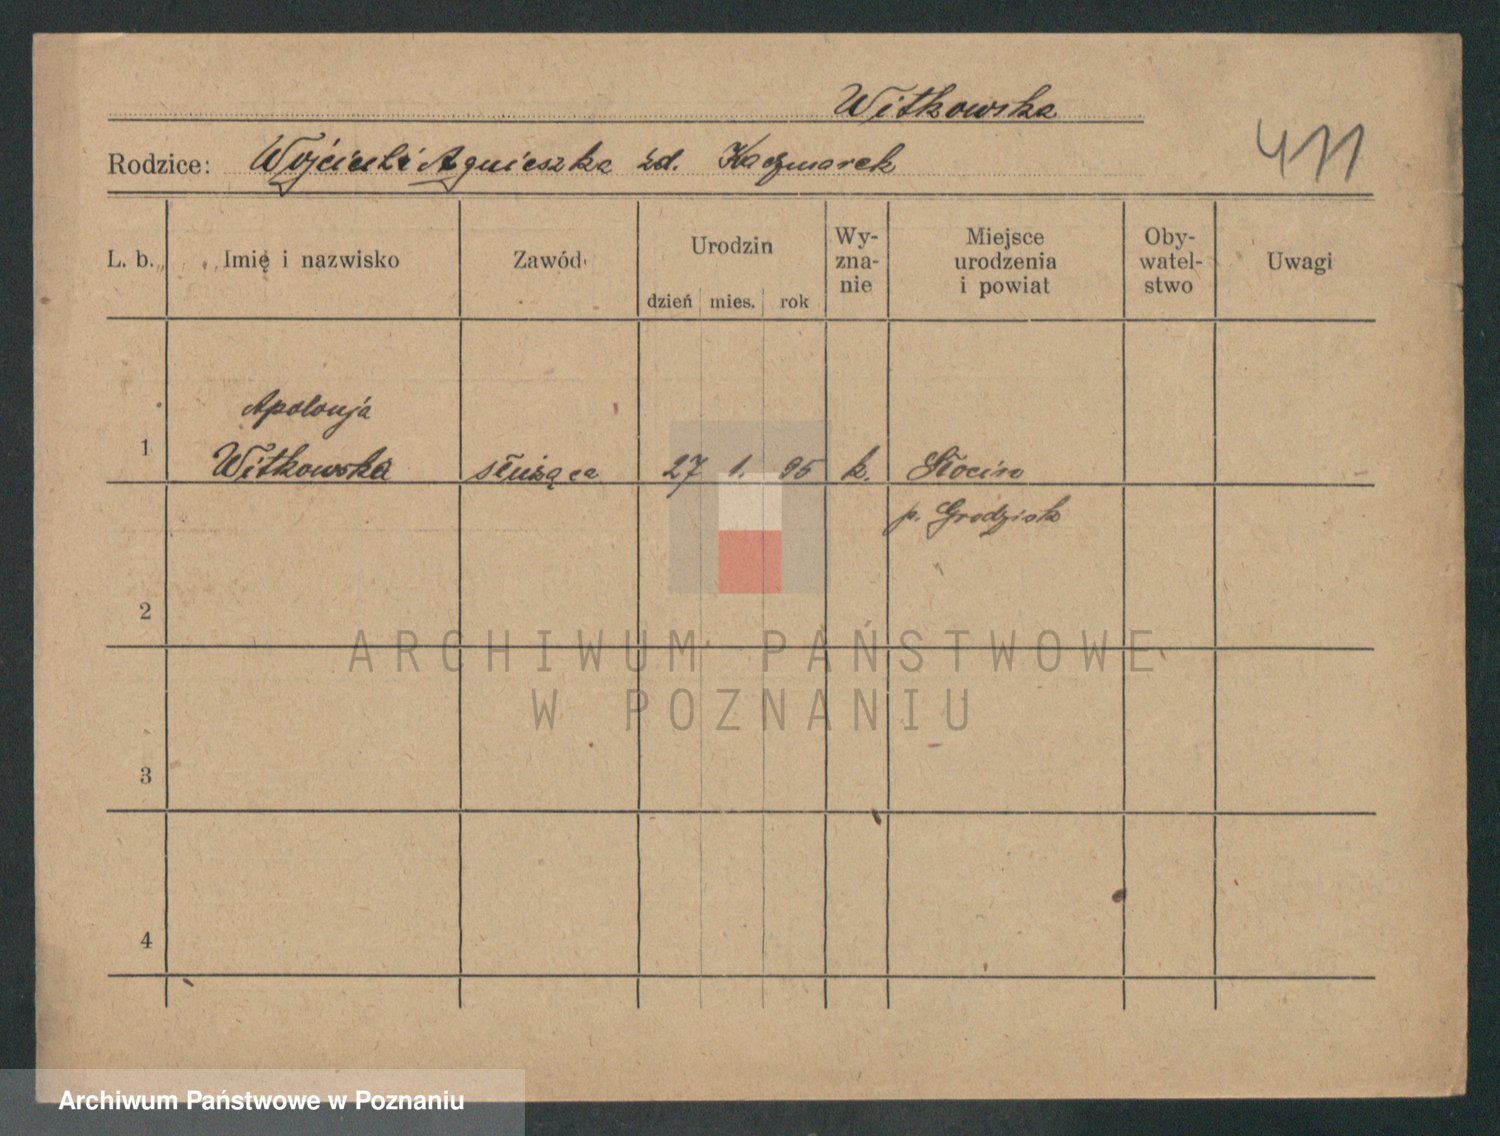 Witkowska
Rodzice: Wojciech i Agnieszka żd. Kaczmarek
411
L. b. Imię i nazwisko Zawód Urodzin dzień mies. rok Wyznanie Miejsce urodzenia i powiat Obywatelstwo Uwagi
Apolonja
1 Witkowska służąca 27 1. 95 k.
p. Grodzisk
2
ARCHIWUM PAŃSTWOWE
W POZNANIU
3
4
Archiwum Państwowe w Poznaniu